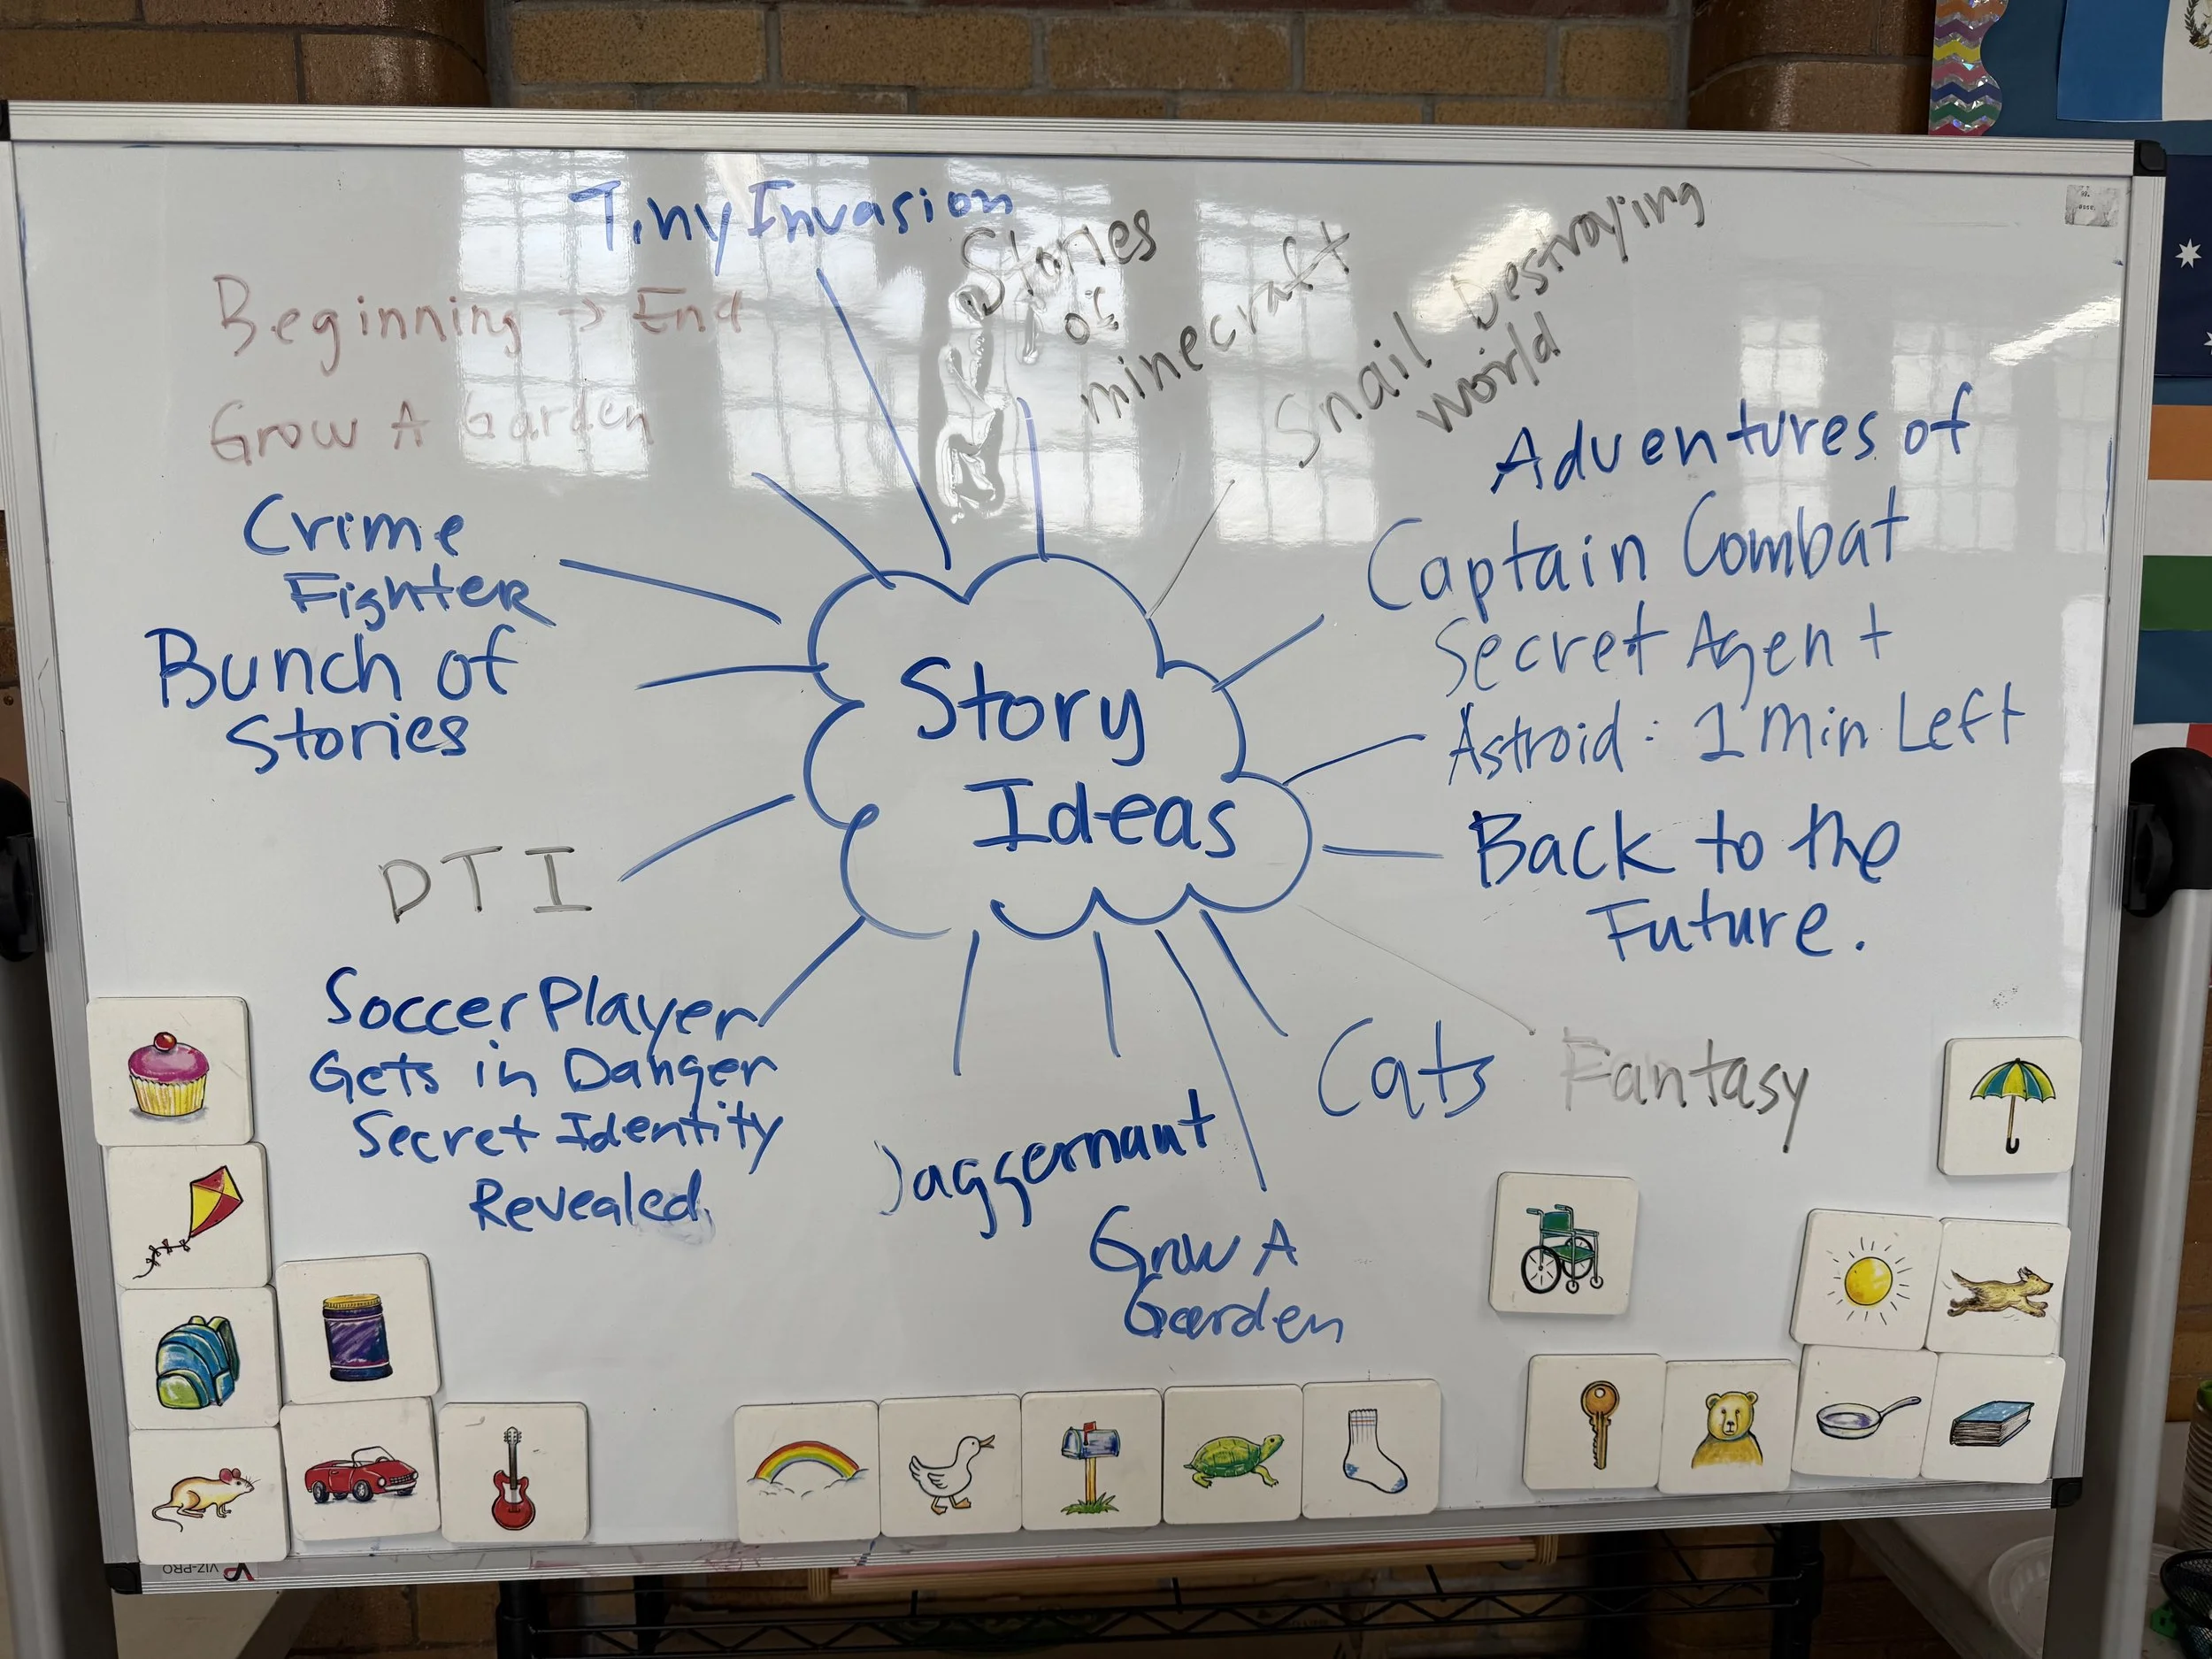 Tiny Invasion
Stories
of
minecraft
Snail Destroying
World
Beginning → End
Grow A Garden
Crime
Fighter
Bunch of
Stories
DTI
Soccer Player
Gets in Danger
Secret Identity
Revealed
Story
Ideas
Adventures of
Captain Combat
Secret Agent
Astroid: 1 Min Left
Back to the
Future.
Cats
Fantasy
Jaggernaut
Grow A
Garden
VIZ-PRO